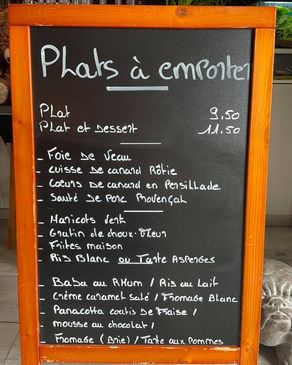 Plats à emporter
Plat 9,50
Plat et Dessert 11.50
_ Foie De Veau
_ Cuisse De canard Rôtie
_ Coeurs De canard en Persillade
_ Sauté De Porc Provençal
_ Haricots Vert
_ Gratin de choux-fleur
_ Frites maison
_ Ris Blanc ou Tarte Asperges
_ Baba au Rhum / Ris au Lait
_ Crème caramel salé / Fromage Blanc
_ Panacotta coulis De Fraise /
_ mousse au chocolat /
_ Fromage (Brie) / Tarte aux Pommes